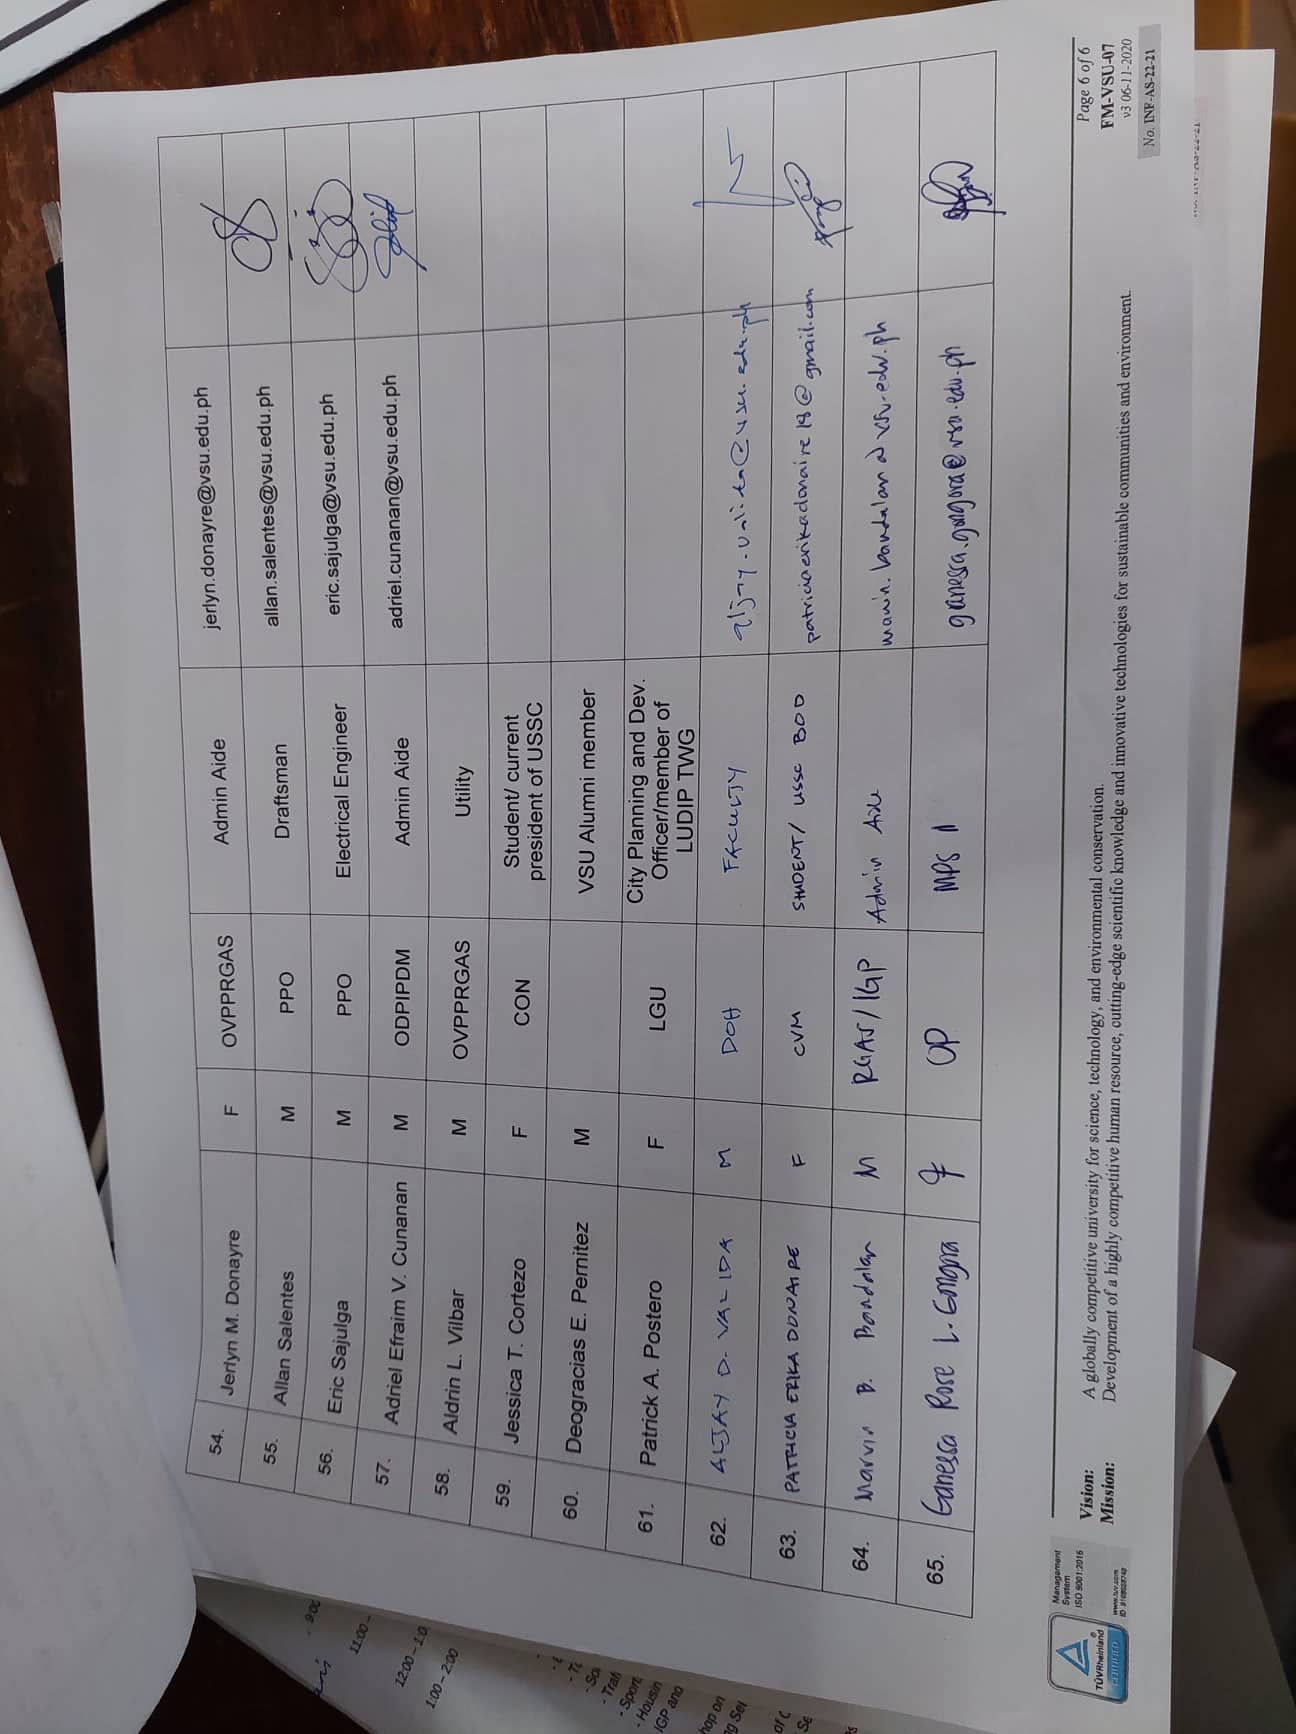 54. Jerlyn M. Donayre F OVPPRGAS Admin Aide jerlyn.donayre@vsu.edu.ph
55. Allan Salentes M PPO Draftsman allan.salentes@vsu.edu.ph
56. Eric Sajulga M PPO Electrical Engineer eric.sajulga@vsu.edu.ph
57. Adriel Efraim V. Cunanan M ODPIPDM Admin Aide adriel.cunanan@vsu.edu.ph
58. Aldrin L. Vilbar M OVPPRGAS Utility
59. Jessica T. Cortezo F CON Student/ current
president of USSC
60. Deogracias E. Pernitez M VSU Alumni member
61. Patrick A. Postero F LGU City Planning and Dev.
Officer/member of
LUDIP TWG
62. ALJAY D. VALIDA M DOH FACULTY aljay.valida@vsu.edu.ph
63. PATRICIA ERIKA DONAIRE F CVM STUDENT/ USSC BOD patriciaerikadonaire18@gmail.com
64. Marvin B. Bandalan M RGAS/IGP Admin Aide marvin.bandalan@vsu.edu.ph
65. Ganessa Rose L. Gongora F OP MPS II ganessa.gongora@vsu.edu.ph
Vision: A globally competitive university for science, technology, and environmental conservation.
Mission: Development of a highly competitive human resource, cutting-edge scientific knowledge and innovative technologies for sustainable communities and environment.
Page 6 of 6
FM-VSU-07
v3 06-11-2020
No. INF-AS-22-21
TÜVRheinland
CERTIFIED
Management
System
ISO 9001:2015
www.tuv.com
11:00 –
12:00 – 1:0
1:00 – 2:00